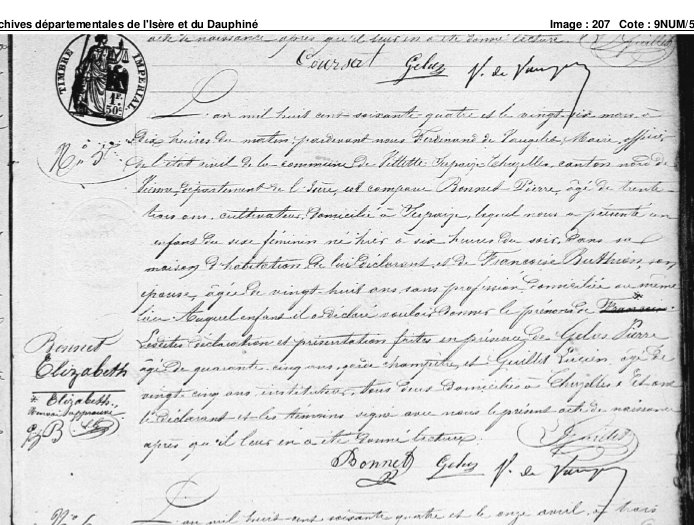 chives départementales de l'Isère et du Dauphiné
Image : 207 Cote : 9NUM/5
acte de naissance après qu'il leur en a été donné lecture. Guillet
Coursat Gelas V. de Vaugelet
TIMBRE IMPERIAL
1F.
50c
L'an mil huit cent soixante quatre et le vingt six mars à
N° 5
Dix heures du matin, pardevant nous Ferdinand de Vaugelet Maire, officier
de l'état civil de la commune de Villette Serpaize Chuzelles, canton nord de
Vienne, département de l'Isère, est comparu Bonnet Pierre, âgé de trente
trois ans, cultivateur, domicilié à Serpaize, lequel nous a présenté un
enfant du sexe féminin né hier à six heures du soir, dans sa
maison d'habitation, de lui déclarant, et de Françoise Buthion, son
épouse, âgée de vingt huit ans sans profession domiciliée au même
lieu Auquel enfant il a déclaré vouloir donner le prénom de
Lesdites déclaration et présentation faites en présence de Gelas Pierre
Bonnet
Elizabeth
âgé de quarante cinq ans, garde champêtre, et Guillet Lucien âgé de
vingt cinq ans, instituteur, tous deux domiciliés à Chuzelles et ont
* Elizabeth.
le déclarant et les témoins signé avec nous le présent acte de naissance
B
après qu'il leur en a été donné lecture.
Guillet
Bonnet Gelas V. de Vaugelet
L'an mil huit cent soixante quatre et le onze avril, à trois
N° 6